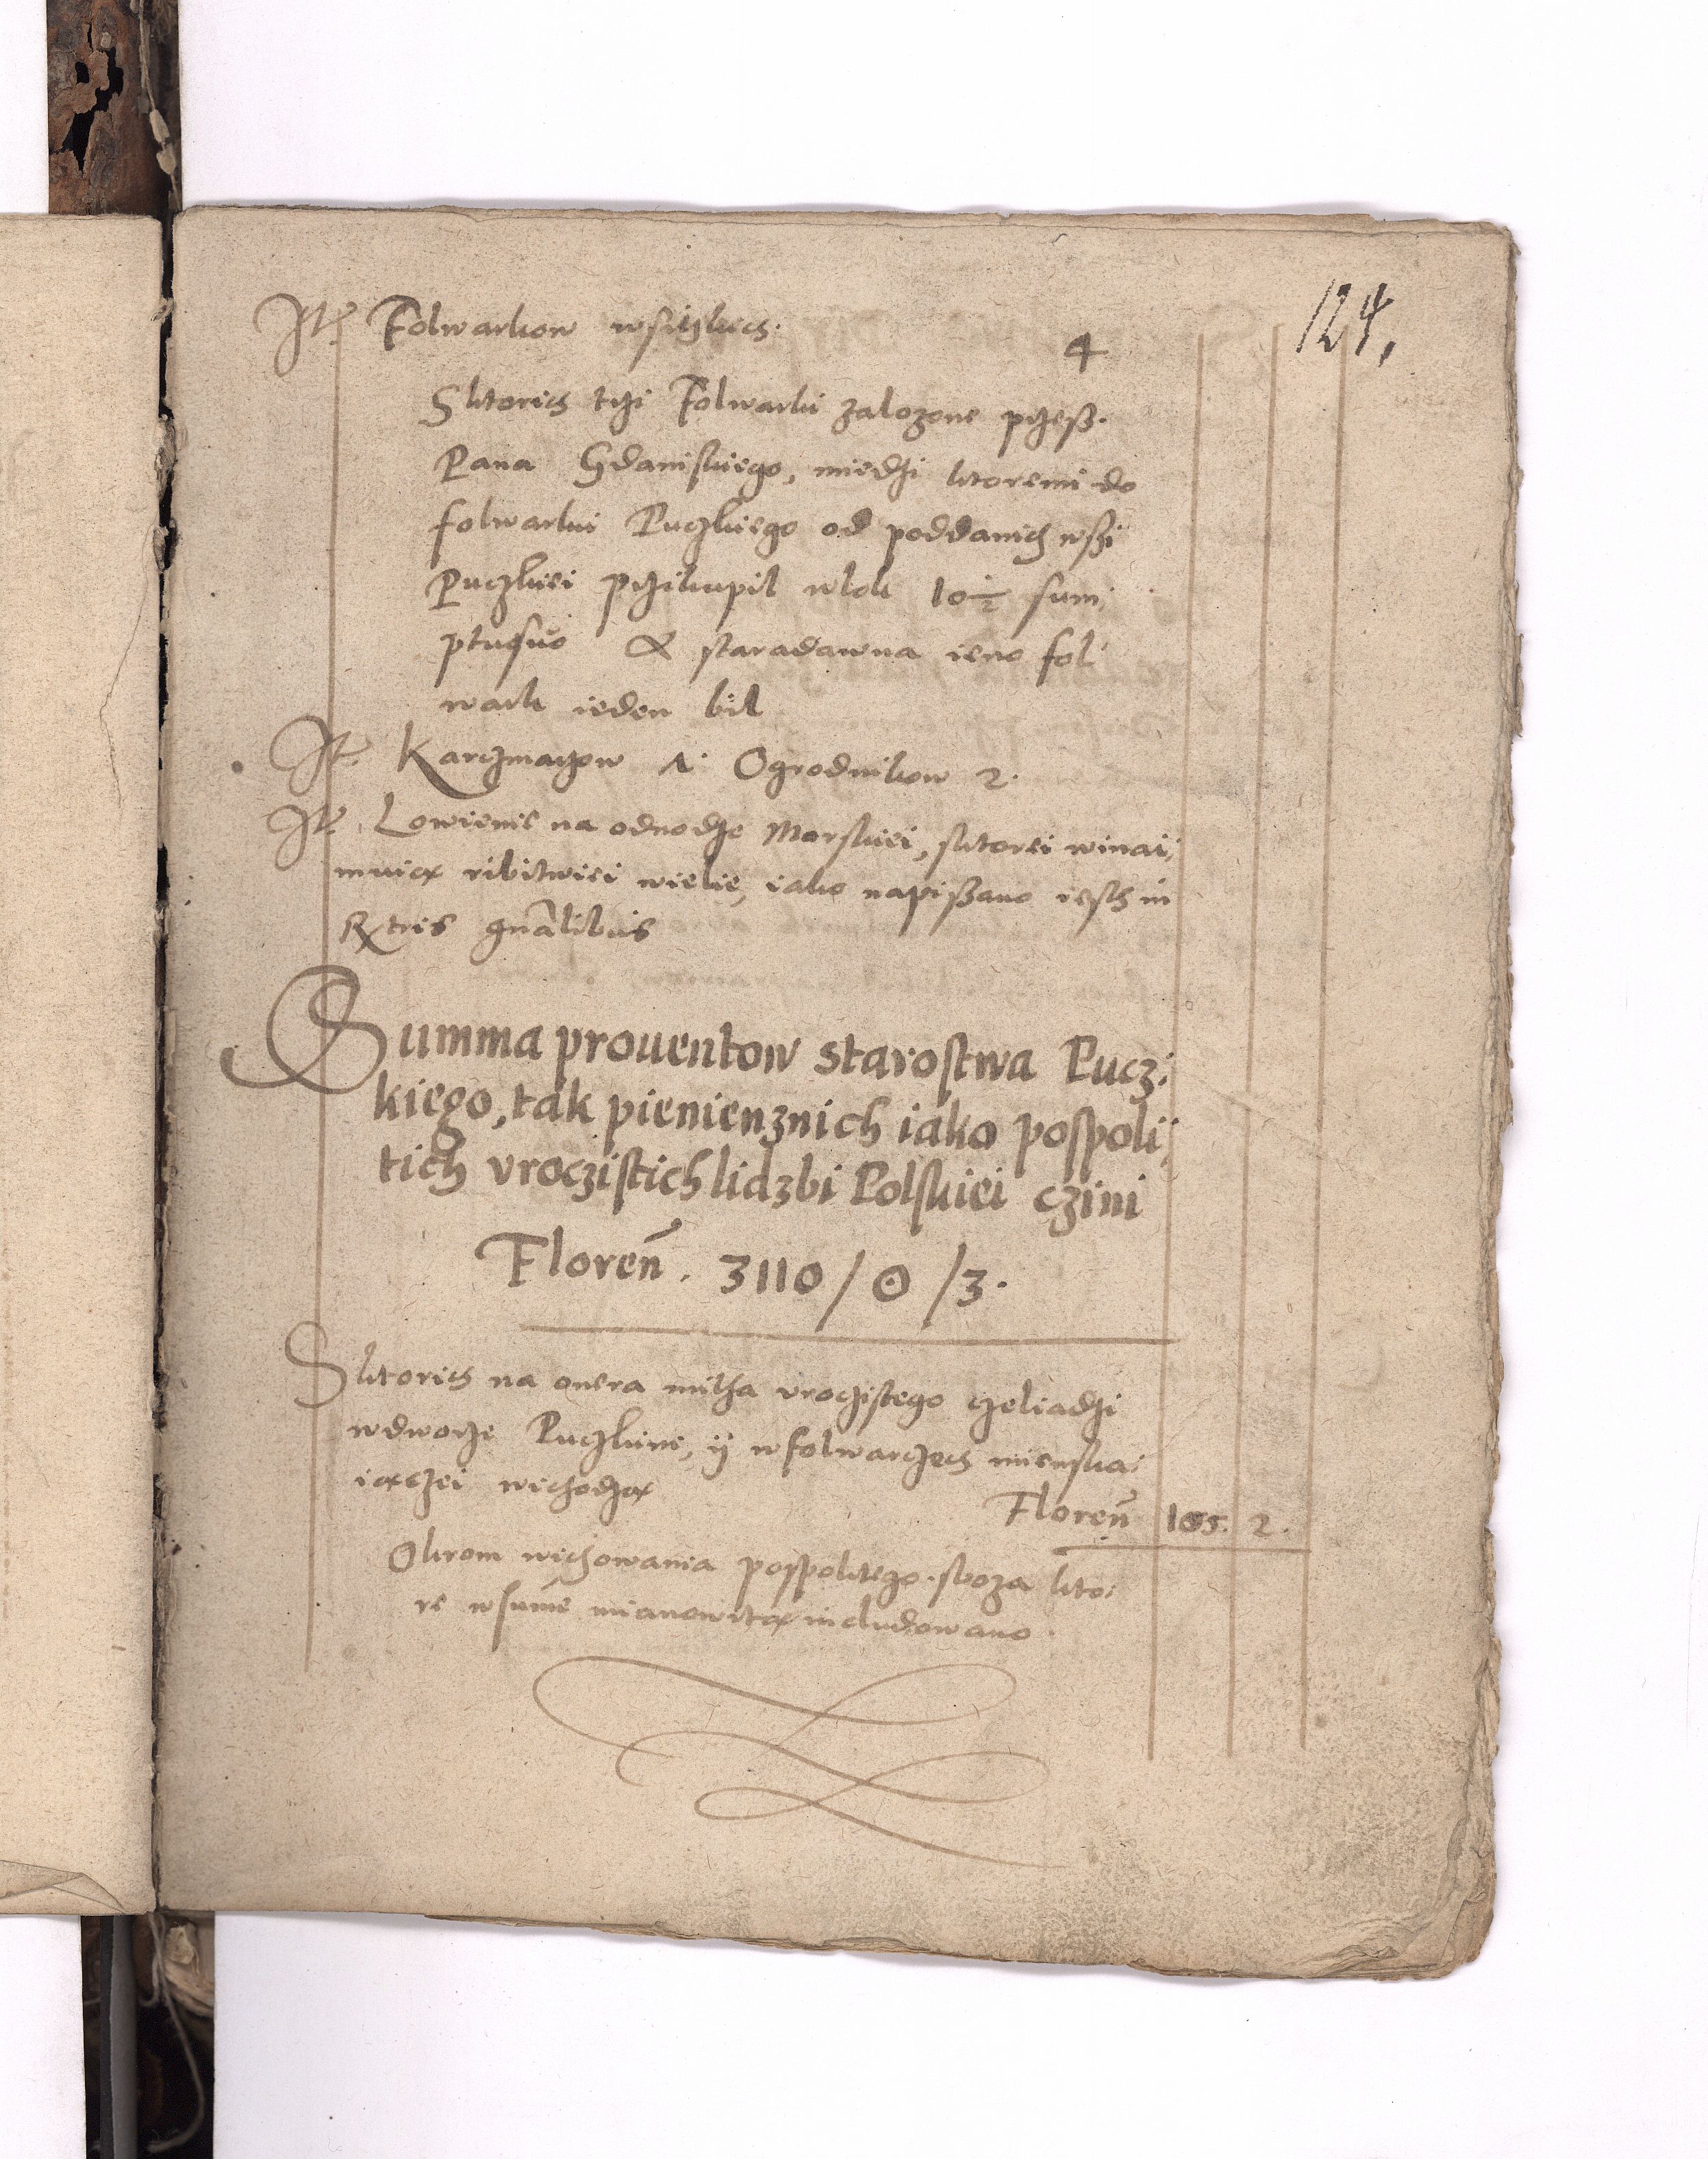 124.
It. Folwarkow wsitzkich. 4
Sktorich trzi Folwarki zalozone przeß.
Pana Gdaniskiego, miedzi ktoremi do
folwarku Puczkiego od poddanich wßi
Puczkiei przikupil wlok 10½ sum,
ptu suo & staradawna ieno fol,
wark ieden bil
It. Karczmarzow 1. Ogrodnikow 2.
It. Lowienie na odnodze Morskiei, sktorei winai,
muią ribitwiei wielie, iako napißano iesth in
Rxtris gnalibus
Summa prouentow starostwa Pucz,
kiego, tak pienienznich iako pospoli,
tich vroczistich lidzbi Polskiei czini
Floren. 3110 / 0 / 3.
Sktorich na onera mitha vroczistego czeliadzi
wdworze Puczkim, ij wfolwarczech mienska,
iączei wichodzą
Floren 155. 2.
Okrom wichowania pospolitego. sboza kto,
re wsume mianowitą includowano.